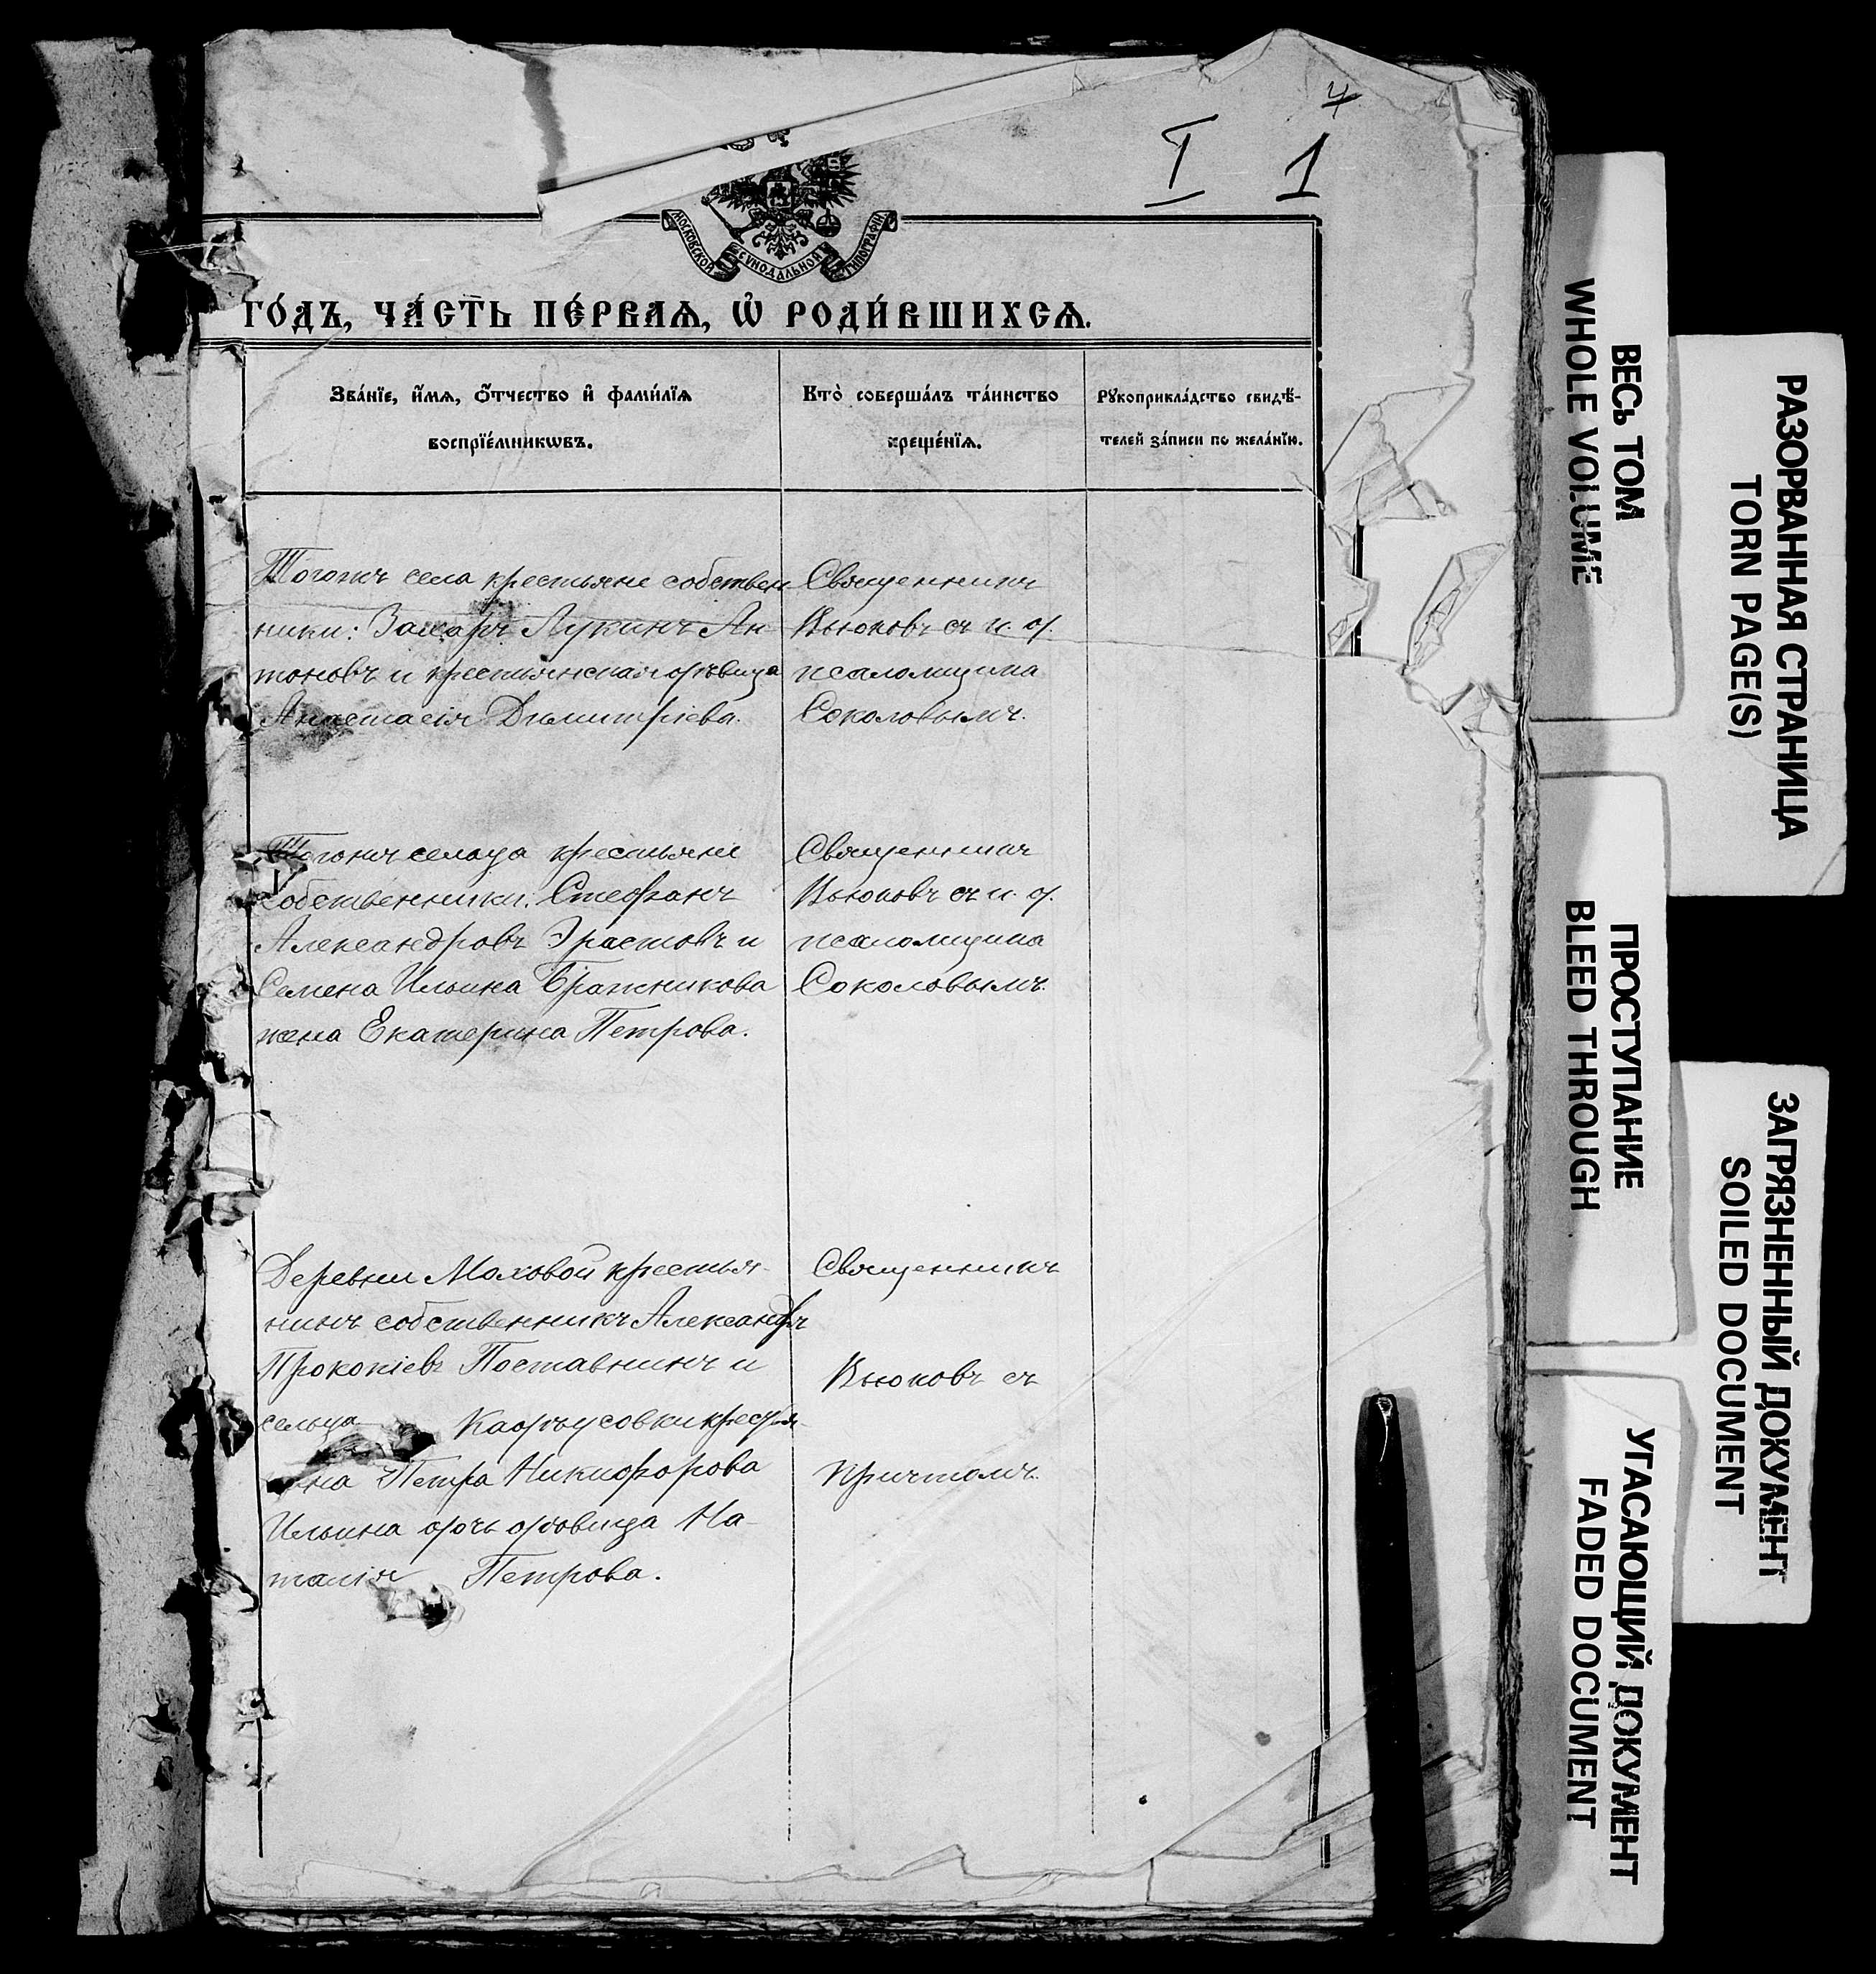 4
I 1
МОСКОВСКОЙ СѴНОДАЛЬНОЙ ТИПОГРАФІИ
ГО́ДЪ, ЧА́СТЬ ПЕ́РВАѦ, Ѡ҆ РОДИ́ВШИХСѦ.
Зва́нїе, и҆́мѧ, ѻ҆́тчество и҆ фами́лїѧ
воспрїе́мникѡвъ.
Кто̀ соверша́лъ та́инство
креще́нїѧ.
Рꙋкоприкла́дство свидѣ́-
телей за́писи по жела́нїю.
Тогожъ села крестьяне собствен
ники: Захаръ Лукинъ Ан-
тоновъ и крестьянская дѣвица
Анастасія Димитріева.
Священникъ
Вьюковъ съ и. д.
псаломщика
Соколовымъ.
Тогожъ сельца крестьяне
собственники: Стефанъ
Александровъ Эрастовъ и
Семена Ильина Бражникова
жена Екатерина Петрова.
Священникъ
Вьюковъ съ и. д.
псаломщика
Соколовымъ.
Деревни Моховой крестья-
нинъ собственникъ Александръ
Прокопіевъ Поставнинъ и
сельца Кадѣусовки крестья-
нина Петра Никифорова
Ильина дочь дѣвица На-
талія Петрова.
Священникъ
Вьюковъ съ
причтомъ.
ВЕСЬ ТОМ
WHOLE VOLUME
РАЗОРВАННАЯ СТРАНИЦА
TORN PAGE(S)
ПРОСТУПАНИЕ
BLEED THROUGH
ЗАГРЯЗНЕННЫЙ ДОКУМЕНТ
SOILED DOCUMENT
УГАСАЮЩИЙ ДОКУМЕНТ
FADED DOCUMENT